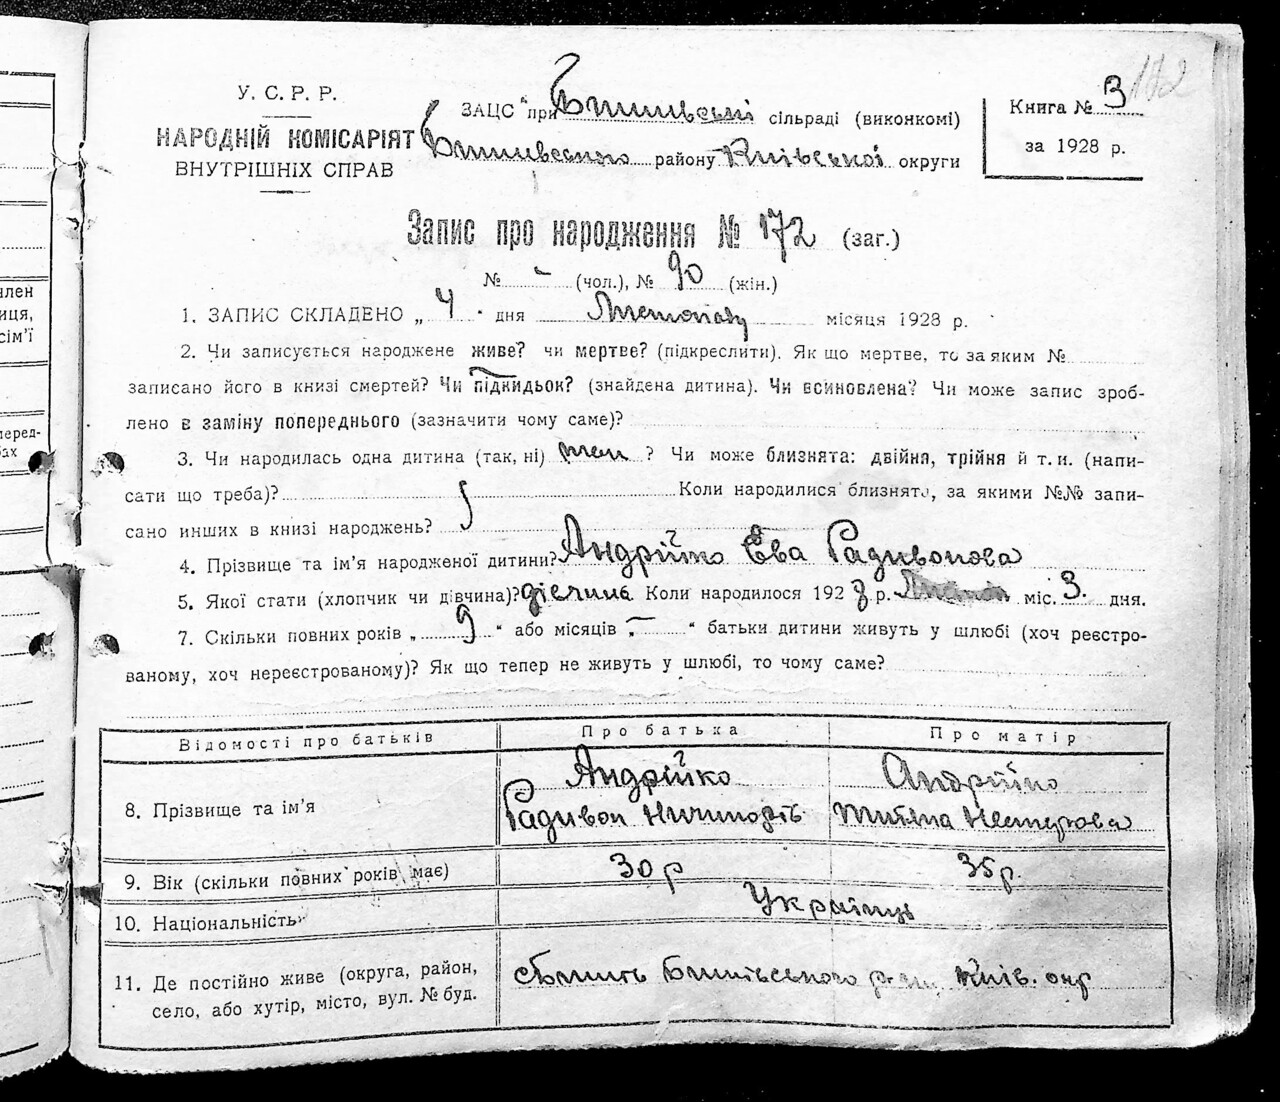 172
У. С. Р. Р.
НАРОДНІЙ КОМІСАРІЯТ
ВНУТРІШНІХ СПРАВ
ЗАЦС при сільраді (виконкомі)
району Київської округи
Книга № 3
за 1928 р.
Запис про народження № 172 (заг.)
№ - (чол.), № 90 (жін.)
1. ЗАПИС СКЛАДЕНО „ 4 " дня місяця 1928 р.
2. Чи записується народжене живе? чи мертве? (підкреслити). Як що мертве, то за яким №
записано його в книзі смертей? Чи підкидьок? (знайдена дитина). Чи всиновлена? Чи може запис зроб-
лено в заміну попереднього (зазначити чому саме)?
3. Чи народилась одна дитина (так, ні) ? Чи може близнята: двійня, трійня й т. и. (напи-
сати що треба)? Коли народилися близнята, за якими №№ запи-
сано инших в книзі народжень?
4. Прізвище та ім'я народженої дитини? Андрійко Ева Радивонова
5. Якої стати (хлопчик чи дівчина)? дівчина Коли народилося 1928 р. міс. 3 дня.
7. Скільки повних років „ 9 " або місяців „ - " батьки дитини живуть у шлюбі (хоч реєстро-
ваному, хоч нереєстрованому)? Як що тепер не живуть у шлюбі, то чому саме?
Відомості про батьків Про батька Про матір
8. Прізвище та ім'я Андрійко Андрійко
Радивон Ничипорів Титяна Нестерова
9. Вік (скільки повних років має) 30 р 35 р.
10. Національність Українці
11. Де постійно живе (округа, район,
село, або хутір, місто, вул. № буд. Київ. окр
член
иця,
сім'ї
перед-
бах